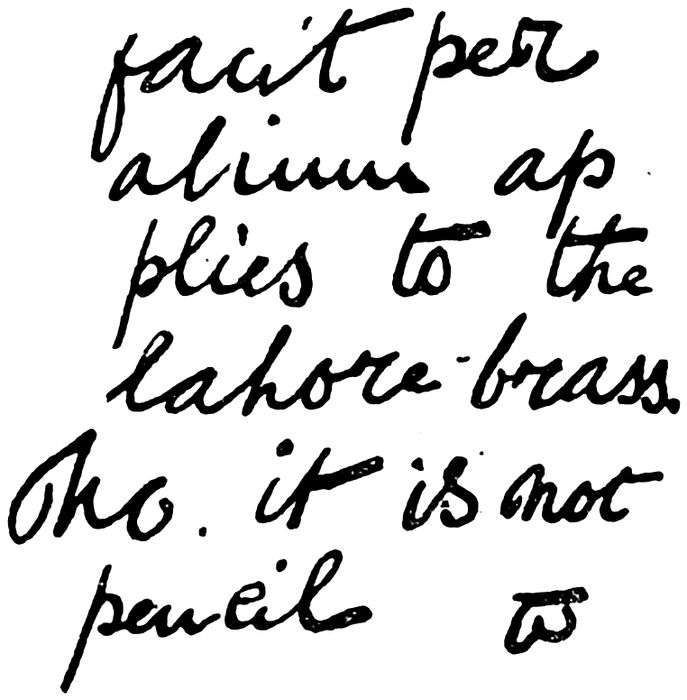 facit per
alium ap
plies to the
lahore-brass.
No. it is not
pencil to